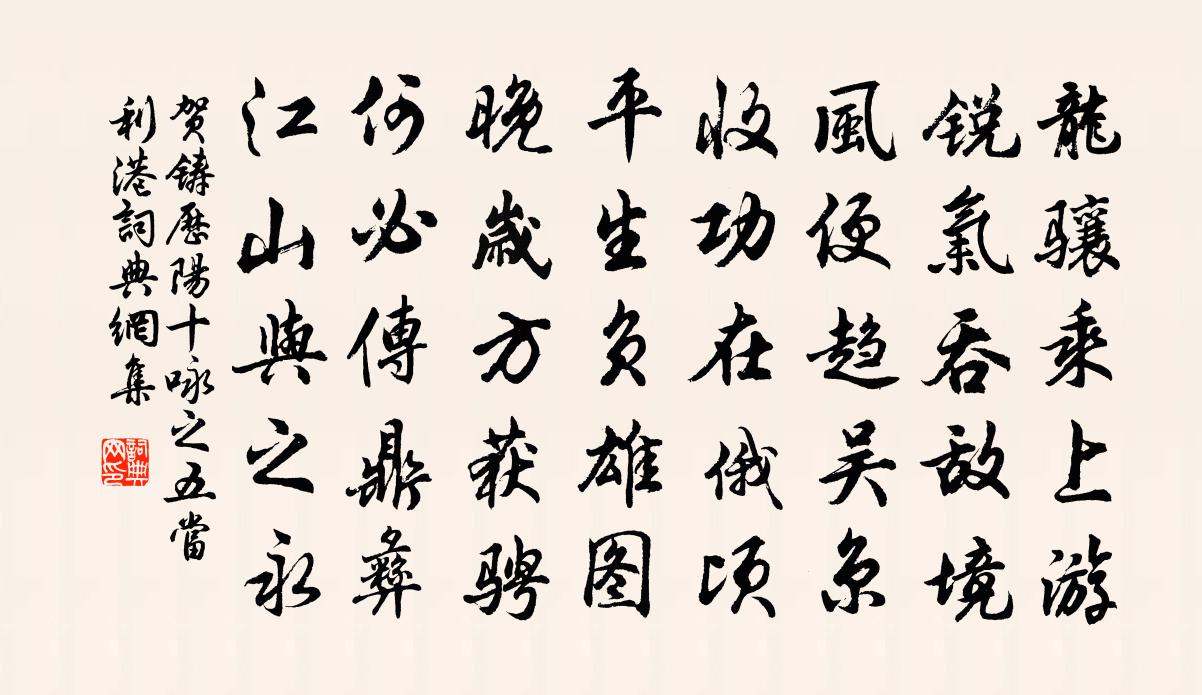 龍驤乘上游
銳氣吞敵境
風便趋吴京
收功在俄頃
平生負雄图
晚歲方获騁
何必傳鼎彝
江山與之永
賀鑄歷陽十咏之五當
利港詞典網集
詞典网印